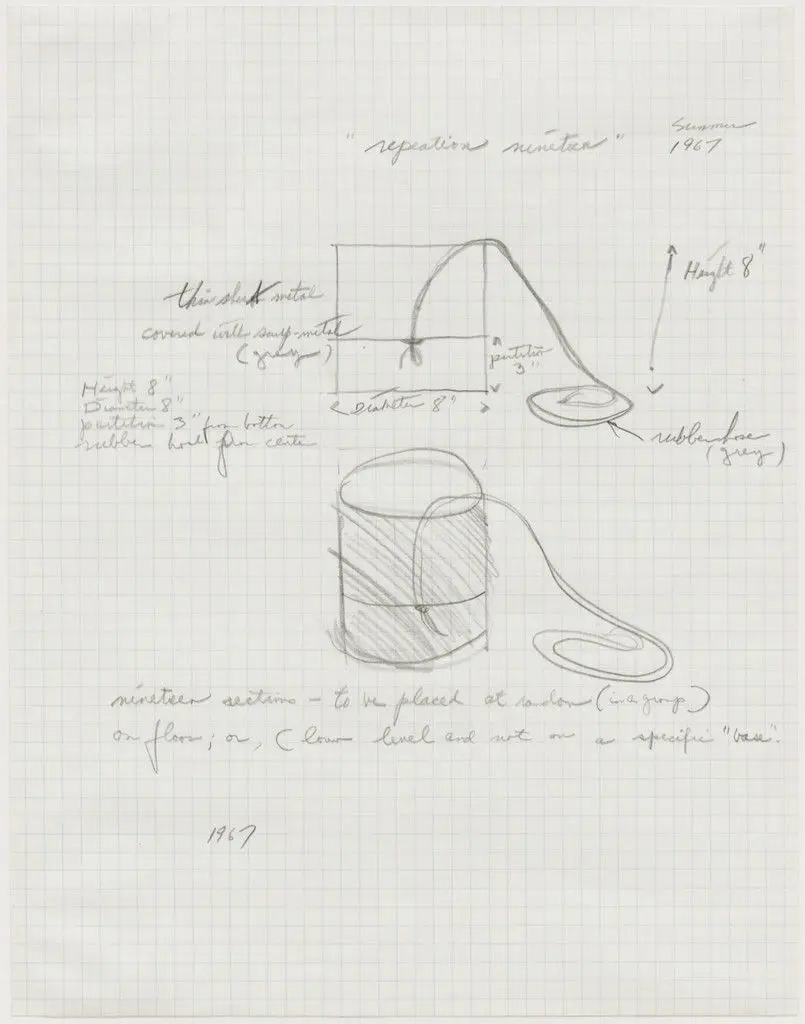 "repeation nineteen"
Summer
1967
Height 8"
thin sheet metal
covered with sculp-metal
(grey)
partition
3"
Height 8"
Diameter 8"
partition 3" from bottom
rubber hose from center
Diameter 8"
rubber hose
(grey)
nineteen sections – to be placed at random (in a group)
on floor; or, (low level and not on a specific "base".
1967